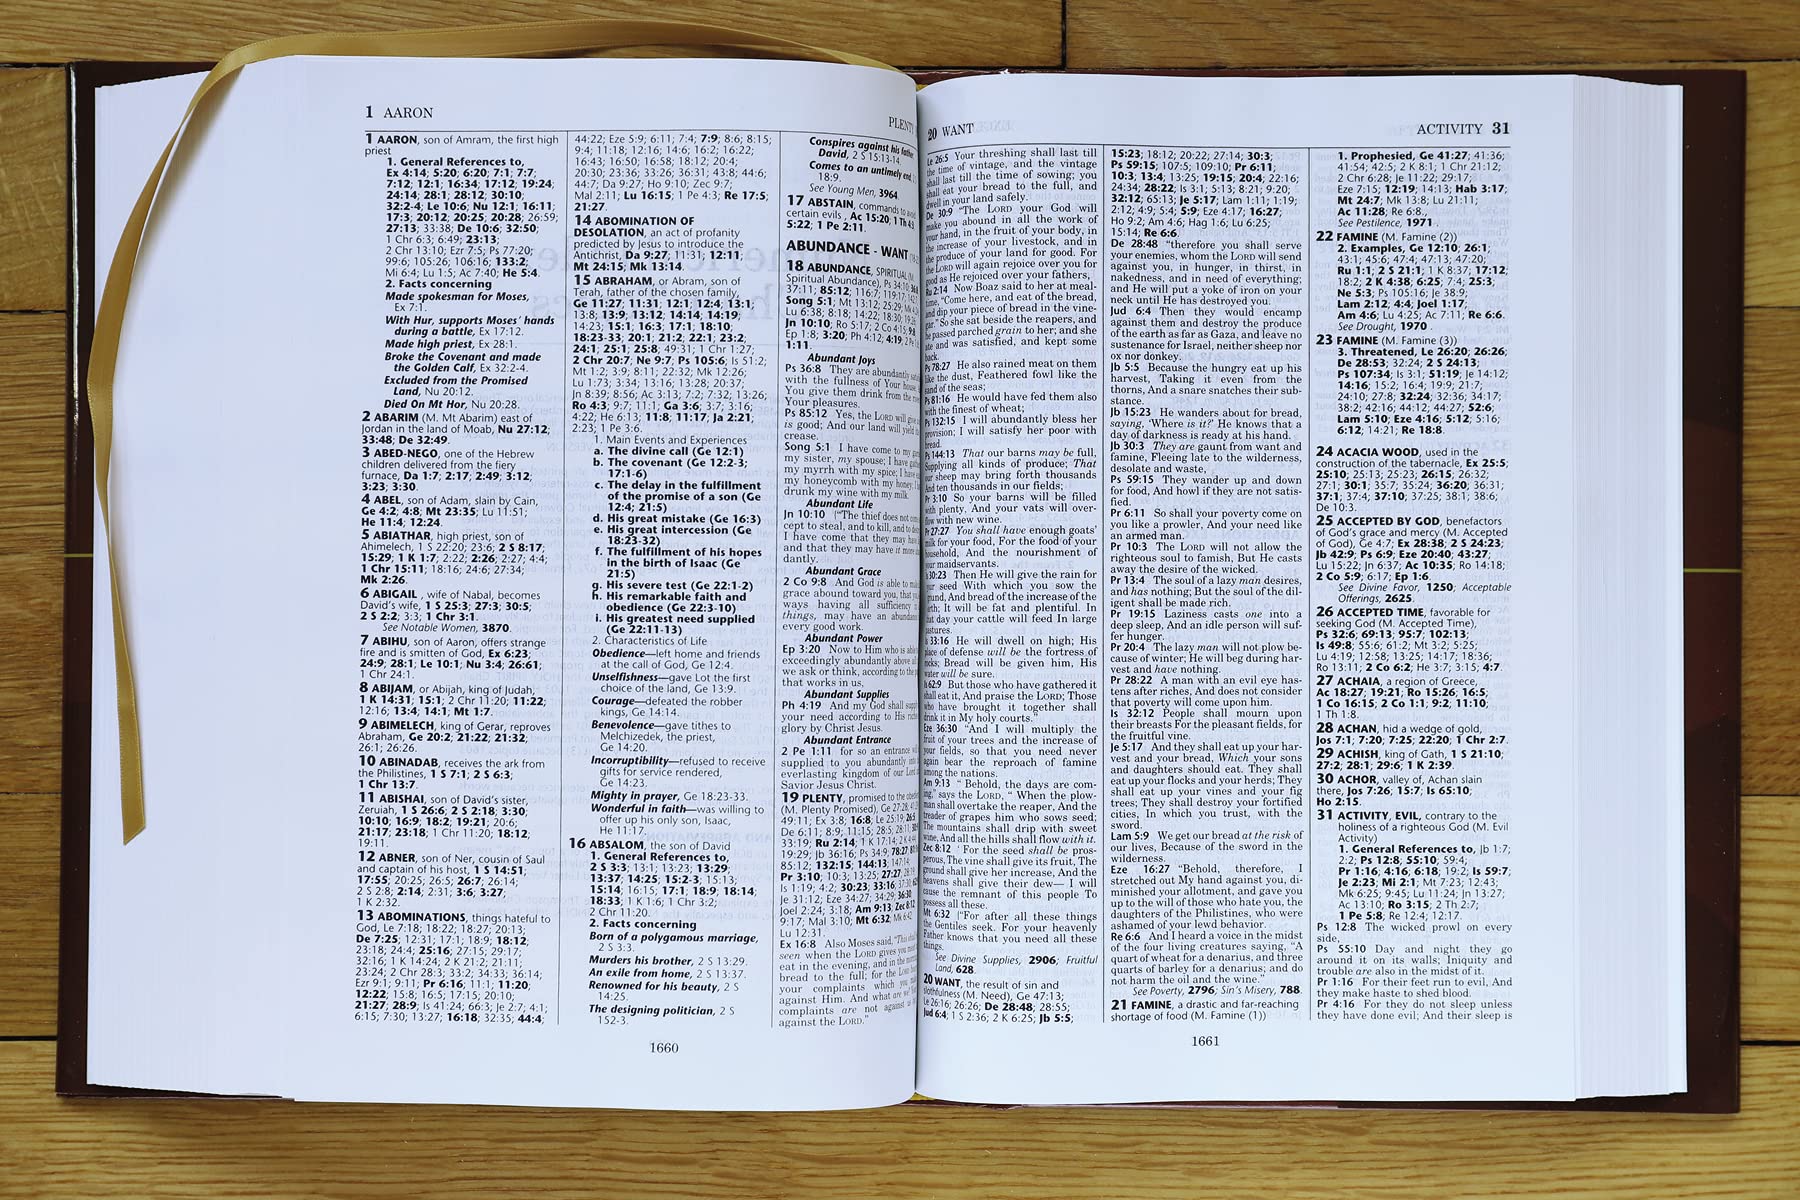 1 AARON
PLENTY
1 AARON, son of Amram, the first high
priest
1. General References to,
Ex 4:14; 5:20; 6:20; 7:1; 7:7;
7:12; 12:1; 16:34; 17:12; 19:24;
24:14; 28:1; 28:12; 30:10;
32:2-4; Le 10:6; Nu 12:1; 16:11;
17:3; 20:12; 20:25; 20:28; 26:59;
27:13; 33:38; De 10:6; 32:50;
1 Chr 6:3; 6:49; 23:13;
2 Chr 13:10; Ezr 7:5; Ps 77:20;
99:6; 105:26; 106:16; 133:2;
Mi 6:4; Lu 1:5; Ac 7:40; He 5:4.
2. Facts concerning
Made spokesman for Moses,
Ex 7:1.
With Hur, supports Moses' hands
during a battle, Ex 17:12.
Made high priest, Ex 28:1.
Broke the Covenant and made
the Golden Calf, Ex 32:2-4.
Excluded from the Promised
Land, Nu 20:12.
Died On Mt Hor, Nu 20:28.
2 ABARIM (M. Mt Abarim) east of
Jordan in the land of Moab, Nu 27:12;
33:48; De 32:49.
3 ABED-NEGO, one of the Hebrew
children delivered from the fiery
furnace, Da 1:7; 2:17; 2:49; 3:12;
3:23; 3:30.
4 ABEL, son of Adam, slain by Cain,
Ge 4:2; 4:8; Mt 23:35; Lu 11:51;
He 11:4; 12:24.
5 ABIATHAR, high priest, son of
Ahimelech, 1 S 22:20; 23:6; 2 S 8:17;
15:29; 1 K 1:7; 2:22; 2:26; 2:27; 4:4;
1 Chr 15:11; 18:16; 24:6; 27:34;
Mk 2:26.
6 ABIGAIL , wife of Nabal, becomes
David's wife, 1 S 25:3; 27:3; 30:5;
2 S 2:2; 3:3; 1 Chr 3:1.
See Notable Women, 3870.
7 ABIHU, son of Aaron, offers strange
fire and is smitten of God, Ex 6:23;
24:9; 28:1; Le 10:1; Nu 3:4; 26:61;
1 Chr 24:1.
8 ABIJAM, or Abijah, king of Judah,
1 K 14:31; 15:1; 2 Chr 11:20; 11:22;
12:16; 13:4; 14:1; Mt 1:7.
9 ABIMELECH, king of Gerar, reproves
Abraham, Ge 20:2; 21:22; 21:32;
26:1; 26:26.
10 ABINADAB, receives the ark from
the Philistines, 1 S 7:1; 2 S 6:3;
1 Chr 13:7.
11 ABISHAI, son of David's sister,
Zeruiah, 1 S 26:6; 2 S 2:18; 3:30;
10:10; 16:9; 18:2; 19:21; 20:6;
21:17; 23:18; 1 Chr 11:20; 18:12;
19:11.
12 ABNER, son of Ner, cousin of Saul
and captain of his host, 1 S 14:51;
17:55; 20:25; 26:5; 26:7; 26:14;
2 S 2:8; 2:14; 2:31; 3:6; 3:27;
1 K 2:32.
13 ABOMINATIONS, things hateful to
God, Le 7:18; 18:22; 18:27; 20:13;
De 7:25; 12:31; 17:1; 18:9; 18:12;
23:18; 24:4; 25:16; 27:15; 29:17;
32:16; 1 K 14:24; 2 K 21:2; 21:11;
23:24; 2 Chr 28:3; 33:2; 34:33; 36:14;
Ezr 9:1; 9:11; Pr 6:16; 11:1; 11:20;
12:22; 15:8; 16:5; 17:15; 20:10;
21:27; 28:9; Is 41:24; 66:3; Je 2:7; 4:1;
6:15; 7:30; 13:27; 16:18; 32:35; 44:4;
44:22; Eze 5:9; 6:11; 7:4; 7:9; 8:6; 8:15;
9:4; 11:18; 12:16; 14:6; 16:2; 16:22;
16:43; 16:50; 16:58; 18:12; 20:4;
20:30; 23:36; 33:26; 36:31; 43:8; 44:6;
44:7; Da 9:27; Ho 9:10; Zec 9:7;
Mal 2:11; Lu 16:15; 1 Pe 4:3; Re 17:5;
21:27.
14 ABOMINATION OF
DESOLATION, an act of profanity
predicted by Jesus to introduce the
Antichrist, Da 9:27; 11:31; 12:11;
Mt 24:15; Mk 13:14.
15 ABRAHAM, or Abram, son of
Terah, father of the chosen family,
Ge 11:27; 11:31; 12:1; 12:4; 13:1;
13:8; 13:9; 13:12; 14:14; 14:19;
14:23; 15:1; 16:3; 17:1; 18:10;
18:23-33; 20:1; 21:2; 22:1; 23:2;
24:1; 25:1; 25:8; 49:31; 1 Chr 1:27;
2 Chr 20:7; Ne 9:7; Ps 105:6; Is 51:2;
Mt 1:2; 3:9; 8:11; 22:32; Mk 12:26;
Lu 1:73; 3:34; 13:16; 13:28; 20:37;
Jn 8:39; 8:56; Ac 3:13; 7:2; 7:32; 13:26;
Ro 4:3; 9:7; 11:1; Ga 3:6; 3:7; 3:16;
4:22; He 6:13; 11:8; 11:17; Ja 2:21;
2:23; 1 Pe 3:6.
1. Main Events and Experiences
a. The divine call (Ge 12:1)
b. The covenant (Ge 12:2-3;
17:1-6)
c. The delay in the fulfillment
of the promise of a son (Ge
12:4; 21:5)
d. His great mistake (Ge 16:3)
e. His great intercession (Ge
18:23-32)
f. The fulfillment of his hopes
in the birth of Isaac (Ge
21:5)
g. His severe test (Ge 22:1-2)
h. His remarkable faith and
obedience (Ge 22:3-10)
i. His greatest need supplied
(Ge 22:11-13)
2. Characteristics of Life
Obedience—left home and friends
at the call of God, Ge 12:4.
Unselfishness—gave Lot the first
choice of the land, Ge 13:9.
Courage—defeated the robber
kings, Ge 14:14.
Benevolence—gave tithes to
Melchizedek, the priest,
Ge 14:20.
Incorruptibility—refused to receive
gifts for service rendered,
Ge 14:23.
Mighty in prayer, Ge 18:23-33.
Wonderful in faith—was willing to
offer up his only son, Isaac,
He 11:17.
16 ABSALOM, the son of David
1. General References to,
2 S 3:3; 13:1; 13:23; 13:29;
13:37; 14:25; 15:2-3; 15:13;
15:14; 16:15; 17:1; 18:9; 18:14;
18:33; 1 K 1:6; 1 Chr 3:2;
2 Chr 11:20.
2. Facts concerning
Born of a polygamous marriage,
2 S 3:3.
Murders his brother, 2 S 13:29.
An exile from home, 2 S 13:37.
Renowned for his beauty, 2 S
14:25.
The designing politician, 2 S
152-3.
Conspires against his father
David, 2 S 15:13-14.
Comes to an untimely end,
18:9.
See Young Men, 3964.
17 ABSTAIN, commands to
certain evils , Ac 15:20; 1 Th 4:3
5:22; 1 Pe 2:11.
ABUNDANCE - WANT
18 ABUNDANCE, SPIRITUAL (M.
Spiritual Abundance), Ps 34:10;
37:11; 85:12; 116:7; 119:17;
Song 5:1; Mt 13:12; 25:29;
Lu 6:38; 8:18; 14:22; 18:30;
Jn 10:10; Ro 5:17; 2 Co 4:15;
Ep 1:8; 3:20; Ph 4:12; 4:19; 2 Pe
1:11.
Abundant Joys
Ps 36:8 They are abundantly
with the fullness of Your house,
You give them drink from the
Your pleasures.
Ps 85:12 Yes, the LORD will give
is good; And our land will yield
crease.
Song 5:1 I have come to my
my sister, my spouse; I have
my myrrh with my spice; I have
my honeycomb with my honey;
drunk my wine with my milk.
Abundant Life
Jn 10:10 "The thief does not
cept to steal, and to kill, and to
I have come that they may have
and that they may have it more
dantly.
Abundant Grace
2 Co 9:8 And God is able to
grace abound toward you, that
ways having all sufficiency
things, may have an abundance
every good work.
Abundant Power
Ep 3:20 Now to Him who is able
exceedingly abundantly above
we ask or think, according to the
that works in us,
Abundant Supplies
Ph 4:19 And my God shall supply
your need according to His riches
glory by Christ Jesus.
Abundant Entrance
2 Pe 1:11 for so an entrance will
supplied to you abundantly into
everlasting kingdom of our Lord
Savior Jesus Christ.
19 PLENTY, promised to the
(M. Plenty Promised), Ge 27:28;
49:11; Ex 3:8; 16:8; Le 25:19;
De 6:11; 8:9; 11:15; 28:5; 28:11;
33:19; Ru 2:14; 1 K 17:14; 2 K 4:4
19:29; Jb 36:16; Ps 34:9; 78:27;
85:12; 132:15; 144:13; 147:14
Pr 3:10; 10:3; 13:25; 27:27; 28:19
Is 1:19; 4:2; 30:23; 33:16; 37:30;
Je 31:12; Eze 34:27; 34:29; 36:30;
Joel 2:24; 3:18; Am 9:13; Zec 8:12
9:17; Mal 3:10; Mt 6:32; Mk 6:42
Lu 12:31.
Ex 16:8 Also Moses said, "This
seen when the LORD gives you
eat in the evening, and in the
bread to the full; for the LORD
your complaints which you
against Him. And what are we?
complaints are not against us
against the LORD."
1660
20 WANT
ACTIVITY 31
Le 26:5 Your threshing shall last till
the time of vintage, and the vintage
shall last till the time of sowing; you
shall eat your bread to the full, and
dwell in your land safely.
De 30:9 "The LORD your God will
make you abound in all the work of
your hand, in the fruit of your body, in
the increase of your livestock, and in
the produce of your land for good. For
the LORD will again rejoice over you for
good as He rejoiced over your fathers,
Ru 2:14 Now Boaz said to her at meal-
time, "Come here, and eat of the bread,
and dip your piece of bread in the vine-
gar." So she sat beside the reapers, and
he passed parched grain to her; and she
ate and was satisfied, and kept some
back.
Ps 78:27 He also rained meat on them
like the dust, Feathered fowl like the
sand of the seas;
Ps 81:16 He would have fed them also
with the finest of wheat;
Ps 132:15 I will abundantly bless her
provision; I will satisfy her poor with
bread.
Ps 144:13 That our barns may be full,
Supplying all kinds of produce; That
our sheep may bring forth thousands
And ten thousands in our fields;
Pr 3:10 So your barns will be filled
with plenty, And your vats will over-
flow with new wine.
Pr 27:27 You shall have enough goats'
milk for your food, For the food of your
household, And the nourishment of
your maidservants.
Is 30:23 Then He will give the rain for
your seed With which you sow the
ground, And bread of the increase of the
earth; It will be fat and plentiful. In
that day your cattle will feed In large
pastures.
Is 33:16 He will dwell on high; His
place of defense will be the fortress of
rocks; Bread will be given him, His
water will be sure.
Is 62:9 But those who have gathered it
shall eat it, And praise the LORD; Those
who have brought it together shall
drink it in My holy courts."
Eze 36:30 "And I will multiply the
fruit of your trees and the increase of
your fields, so that you need never
again bear the reproach of famine
among the nations.
Am 9:13 " Behold, the days are com-
ing," says the LORD, " When the plow-
man shall overtake the reaper, And the
treader of grapes him who sows seed;
The mountains shall drip with sweet
wine, And all the hills shall flow with it.
Zec 8:12 ' For the seed shall be pros-
perous, The vine shall give its fruit, The
ground shall give her increase, And the
heavens shall give their dew— I will
cause the remnant of this people To
possess all these.
Mt 6:32 ("For after all these things
the Gentiles seek. For your heavenly
Father knows that you need all these
things.
See Divine Supplies, 2906; Fruitful
Land, 628.
20 WANT, the result of sin and
slothfulness (M. Need), Ge 47:13;
Le 26:16; 26:26; De 28:48; 28:55;
Jud 6:4; 1 S 2:36; 2 K 6:25; Jb 5:5;
15:23; 18:12; 20:22; 27:14; 30:3;
Ps 59:15; 107:5; 109:10; Pr 6:11;
10:3; 13:4; 13:25; 19:15; 20:4; 22:16;
24:34; 28:22; Is 3:1; 5:13; 8:21; 9:20;
32:12; 65:13; Je 5:17; Lam 1:11; 1:19;
2:12; 4:9; 5:4; 5:9; Eze 4:17; 16:27;
Ho 9:2; Am 4:6; Hag 1:6; Lu 6:25;
15:14; Re 6:6.
De 28:48 "therefore you shall serve
your enemies, whom the LORD will send
against you, in hunger, in thirst, in
nakedness, and in need of everything;
and He will put a yoke of iron on your
neck until He has destroyed you.
Jud 6:4 Then they would encamp
against them and destroy the produce
of the earth as far as Gaza, and leave no
sustenance for Israel, neither sheep nor
ox nor donkey.
Jb 5:5 Because the hungry eat up his
harvest, Taking it even from the
thorns, And a snare snatches their sub-
stance.
Jb 15:23 He wanders about for bread,
saying, 'Where is it?' He knows that a
day of darkness is ready at his hand.
Jb 30:3 They are gaunt from want and
famine, Fleeing late to the wilderness,
desolate and waste,
Ps 59:15 They wander up and down
for food, And howl if they are not satis-
fied.
Pr 6:11 So shall your poverty come on
you like a prowler, And your need like
an armed man.
Pr 10:3 The LORD will not allow the
righteous soul to famish, But He casts
away the desire of the wicked.
Pr 13:4 The soul of a lazy man desires,
and has nothing; But the soul of the dil-
igent shall be made rich.
Pr 19:15 Laziness casts one into a
deep sleep, And an idle person will suf-
fer hunger.
Pr 20:4 The lazy man will not plow be-
cause of winter; He will beg during har-
vest and have nothing.
Pr 28:22 A man with an evil eye has-
tens after riches, And does not consider
that poverty will come upon him.
Is 32:12 People shall mourn upon
their breasts For the pleasant fields, for
the fruitful vine.
Je 5:17 And they shall eat up your har-
vest and your bread, Which your sons
and daughters should eat. They shall
eat up your flocks and your herds; They
shall eat up your vines and your fig
trees; They shall destroy your fortified
cities, In which you trust, with the
sword.
Lam 5:9 We get our bread at the risk of
our lives, Because of the sword in the
wilderness.
Eze 16:27 "Behold, therefore, I
stretched out My hand against you, di-
minished your allotment, and gave you
up to the will of those who hate you, the
daughters of the Philistines, who were
ashamed of your lewd behavior.
Re 6:6 And I heard a voice in the midst
of the four living creatures saying, "A
quart of wheat for a denarius, and three
quarts of barley for a denarius; and do
not harm the oil and the wine."
See Poverty, 2796; Sin's Misery, 788.
21 FAMINE, a drastic and far-reaching
shortage of food (M. Famine (1))
1. Prophesied, Ge 41:27; 41:36;
41:54; 42:5; 2 K 8:1; 1 Chr 21:12;
2 Chr 6:28; Je 11:22; 29:17;
Eze 7:15; 12:19; 14:13; Hab 3:17;
Mt 24:7; Mk 13:8; Lu 21:11;
Ac 11:28; Re 6:8.,
See Pestilence, 1971 .
22 FAMINE (M. Famine (2))
2. Examples, Ge 12:10; 26:1;
43:1; 45:6; 47:4; 47:13; 47:20;
Ru 1:1; 2 S 21:1; 1 K 8:37; 17:12;
18:2; 2 K 4:38; 6:25; 7:4; 25:3;
Ne 5:3; Ps 105:16; Je 38:9;
Lam 2:12; 4:4; Joel 1:17;
Am 4:6; Lu 4:25; Ac 7:11; Re 6:6.
See Drought, 1970 .
23 FAMINE (M. Famine (3))
3. Threatened, Le 26:20; 26:26;
De 28:53; 32:24; 2 S 24:13;
Ps 107:34; Is 3:1; 51:19; Je 14:12;
14:16; 15:2; 16:4; 19:9; 21:7;
24:10; 27:8; 32:24; 32:36; 34:17;
38:2; 42:16; 44:12; 44:27; 52:6;
Lam 5:10; Eze 4:16; 5:12; 5:16;
6:12; 14:21; Re 18:8.
24 ACACIA WOOD, used in the
construction of the tabernacle, Ex 25:5;
25:10; 25:13; 25:23; 26:15; 26:32;
27:1; 30:1; 35:7; 35:24; 36:20; 36:31;
37:1; 37:4; 37:10; 37:25; 38:1; 38:6;
De 10:3.
25 ACCEPTED BY GOD, benefactors
of God's grace and mercy (M. Accepted
of God), Ge 4:7; Ex 28:38; 2 S 24:23;
Jb 42:9; Ps 6:9; Eze 20:40; 43:27;
Lu 15:22; Jn 6:37; Ac 10:35; Ro 14:18;
2 Co 5:9; 6:17; Ep 1:6.
See Divine Favor, 1250; Acceptable
Offerings, 2625.
26 ACCEPTED TIME, favorable for
seeking God (M. Accepted Time),
Ps 32:6; 69:13; 95:7; 102:13;
Is 49:8; 55:6; 61:2; Mt 3:2; 5:25;
Lu 4:19; 12:58; 13:25; 14:17; 18:36;
Ro 13:11; 2 Co 6:2; He 3:7; 3:15; 4:7.
27 ACHAIA, a region of Greece,
Ac 18:27; 19:21; Ro 15:26; 16:5;
1 Co 16:15; 2 Co 1:1; 9:2; 11:10;
1 Th 1:8.
28 ACHAN, hid a wedge of gold,
Jos 7:1; 7:20; 7:25; 22:20; 1 Chr 2:7.
29 ACHISH, king of Gath, 1 S 21:10;
27:2; 28:1; 29:6; 1 K 2:39.
30 ACHOR, valley of, Achan slain
there, Jos 7:26; 15:7; Is 65:10;
Ho 2:15.
31 ACTIVITY, EVIL, contrary to the
holiness of a righteous God (M. Evil
Activity)
1. General References to, Jb 1:7;
2:2; Ps 12:8; 55:10; 59:4;
Pr 1:16; 4:16; 6:18; 19:2; Is 59:7;
Je 2:23; Mi 2:1; Mt 7:23; 12:43;
Mk 6:25; 9:45; Lu 11:24; Jn 13:27;
Ac 13:10; Ro 3:15; 2 Th 2:7;
1 Pe 5:8; Re 12:4; 12:17.
Ps 12:8 The wicked prowl on every
side,
Ps 55:10 Day and night they go
around it on its walls; Iniquity and
trouble are also in the midst of it.
Pr 1:16 For their feet run to evil, And
they make haste to shed blood.
Pr 4:16 For they do not sleep unless
they have done evil; And their sleep is
1661